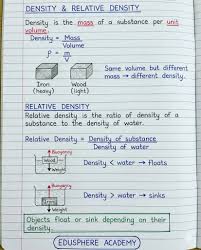 DENSITY & RELATIVE DENSITY
Density is the mass of a substance per unit
volume.
Density = Mass
Volume
ρ = m
V
Same volume but different
mass → different density.
Iron
(heavy)
Wood
(light)
RELATIVE DENSITY
Relative density is the ratio of density of a
substance to the density of water.
Relative Density = Density of substance
Density of water
Buoyancy
Wood
Weight
Density < water → floats
Buoyancy
Weight
Density > water → sinks
Objects float or sink depending on their
density.
EDUSPHERE ACADEMY